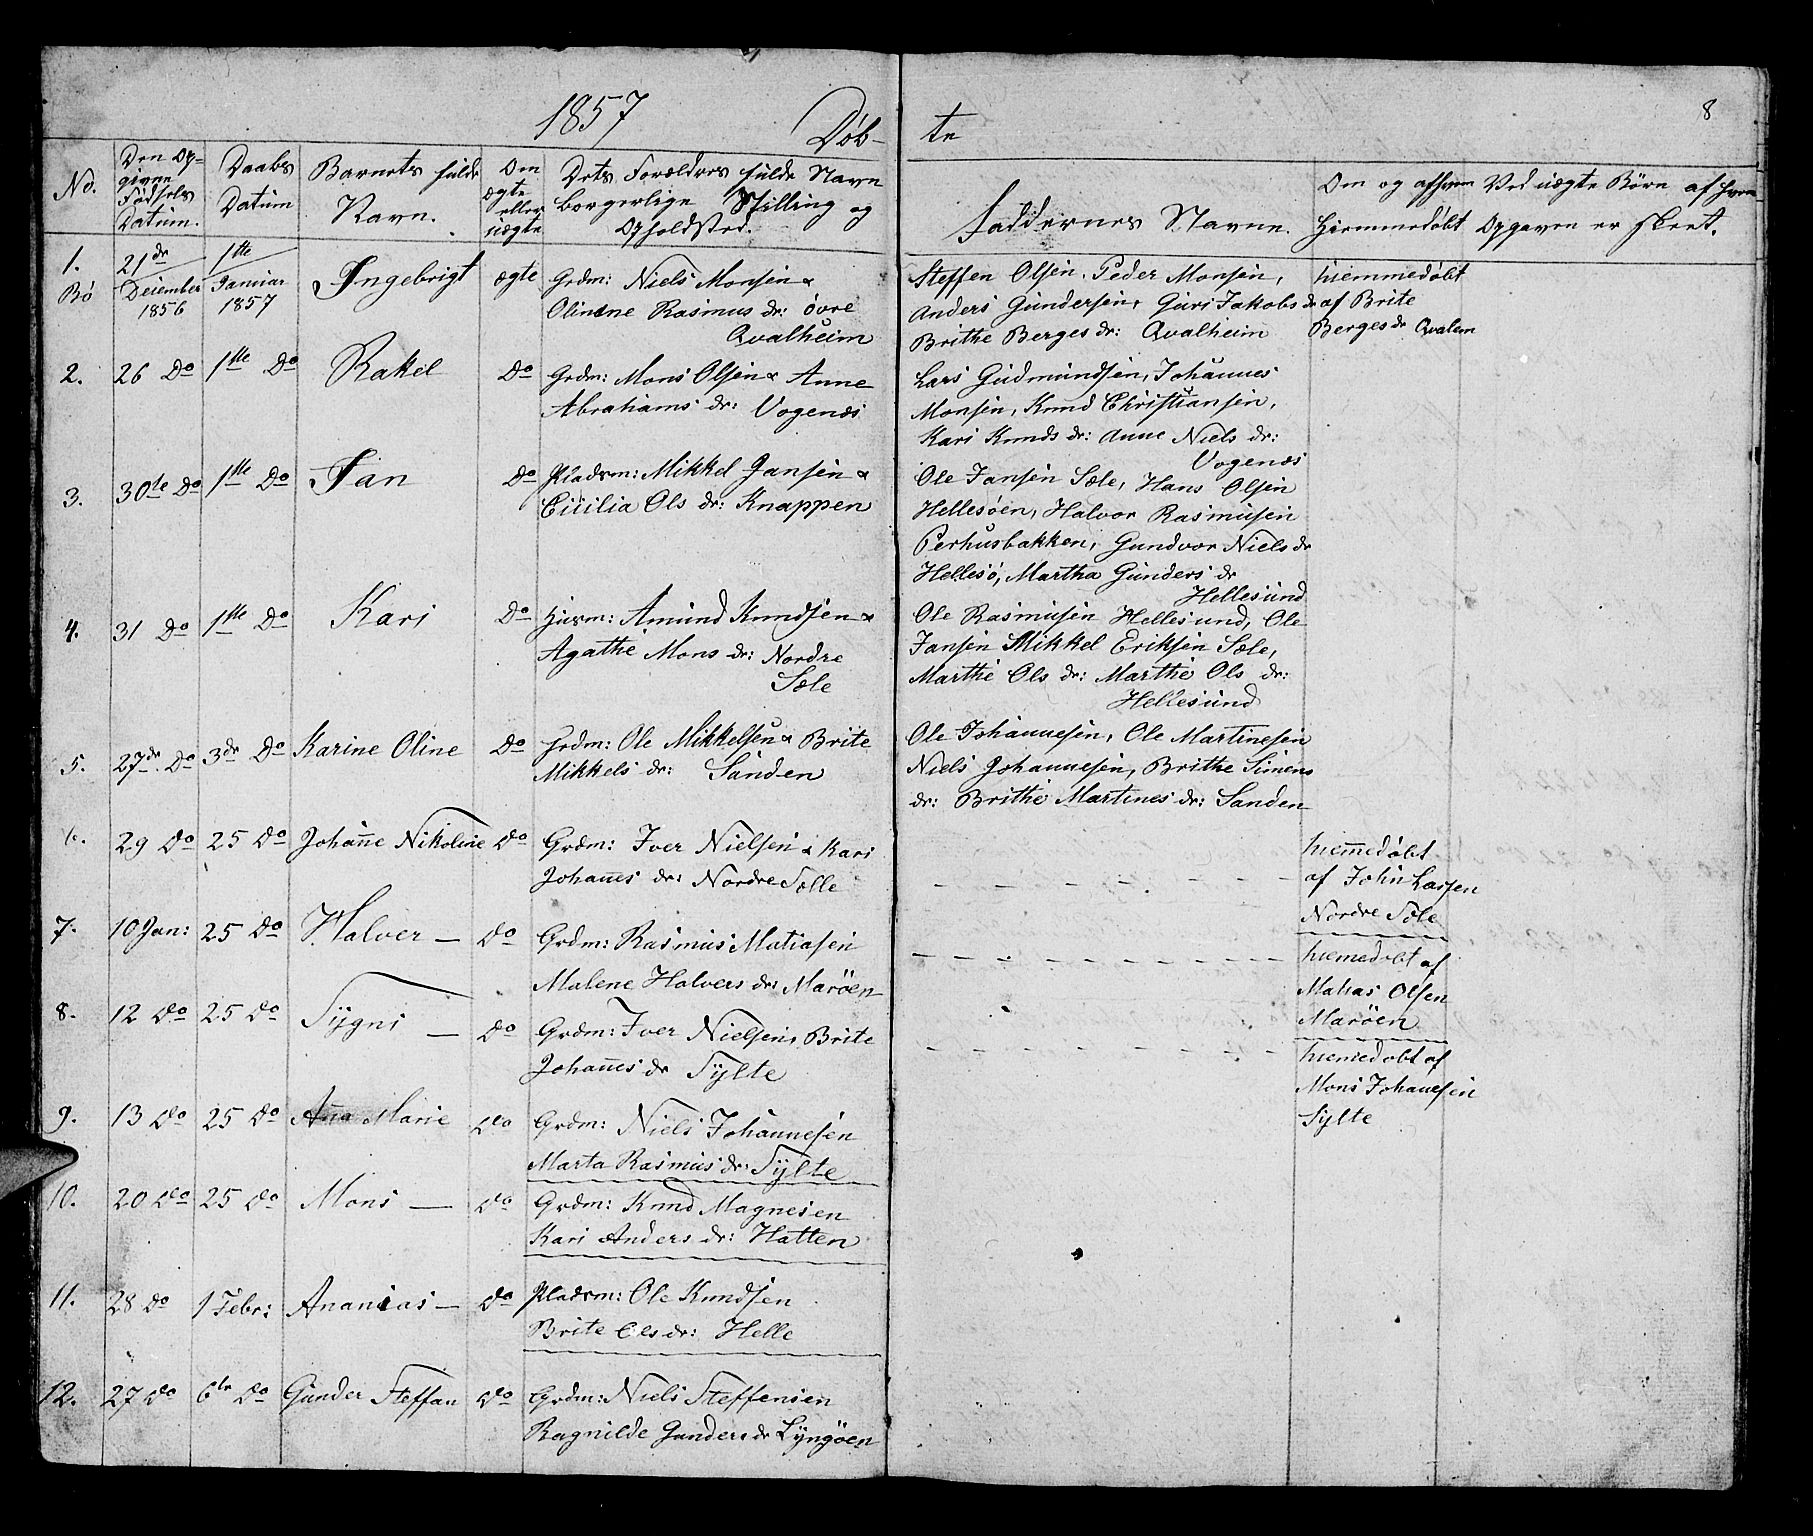 1857
Døb-
te
8
No.
Den Op-
givne
Fødsels
Datum.
Daabs
Datum
Barnets fulde
Navn.
Om
ægte
eller
uægte
Dets Forældres fulde Navn
borgerlige Stilling og
Opholdsted.
Faddernes Navne.
Om og af hvem
Hiemmedøbt
Ved uægte Børn af hvem
Opgaven er skeet.
1.
Bø
21de
Deiember
1856
1ste
Januar
1857
Ingebrigt
ægte
Grdm: Niels Monsen &
Olinine Rasmus dr: øvre
Qvalheim
Steffen Olsen, Peder Monsen,
Anders Gundersen, Guri Jakobs dr
Brithe Berges dr: Qvalheim
hiemmedøbt
af Brite
Berges dr Qvalem
2. 26 Do 1ste Do Rakel Do
Grdm: Mons Olsen & Anne
Abrahams dr: Vogenæs
Lars Gudmundsen, Johannes
Monsen, Knud Christiansen,
Kari Knuds dr: Anne Niels dr:
Vogenæs
3. 30te Do 1ste Do Jan Do
Pladsm: Mikkel Jansen &
Ciiilia Ols dr: Knappen
Ole Jansen Sæle, Hans Olsen
Hellesøen, Halvor Rasmusen
Perhusbakken, Gundvor Niels dr
Hellesø, Martha Gunders dr
Hellesund
4. 31 Do 1ste Do Kari Do
Huusm: Amund Knudsen &
Agathe Mons dr: Nordre
Sæle
Ole Rasmusen Hellesund, Ole
Jansen Mikkel Eriksen Sæle,
Marthe Ols dr: Marthe Ols dr:
Hellesund
5. 27de Do 3de Do Karine Oline Do
Grdm: Ole Mikkelsen & Brite
Mikkels dr: Sanden
Ole Johannesen, Ole Martinesen
Niels Johannesen, Brithe Simens
dr: Brithe Martines dr: Sanden
6. 29 Do 25 Do Johanne Nikoline Do
Grdm: Iver Nielsen & Kari
Johanes dr: Nordre Selle
hiemedøbt
af John Larsen
Nordre Sæle
7. 10 Jan: 25 Do Halver — Do
Grdm: Rasmus Matiasen
Malene Halvers dr: Marøen
hiemedøbt af
Matias Olsen
Marøen
8. 12 Do 25 Do Sygni — Do
Grdm: Iver Nielsen, Brite
Johanes dr Sylte
hiemedøbt af
Mons Johanesen
Sylte
9. 13 Do 25 Do Ana Marie Do
Grdm: Niels Johannesen
Marta Rasmus dr: Sylte
10. 20 Do 25 Do Mons — Do
Grdm: Knud Magnesen
Kari Anders dr: Hatten
11. 28 Do 1 Febr: Ananias — Do
Pladsm: Ole Knudsen
Brite Ols dr: Helle
12. 27 Do 6te Do Gunder Steffan Do
Grdm: Niels Steffensen
Ragnilde Gunders dr Lyngøen